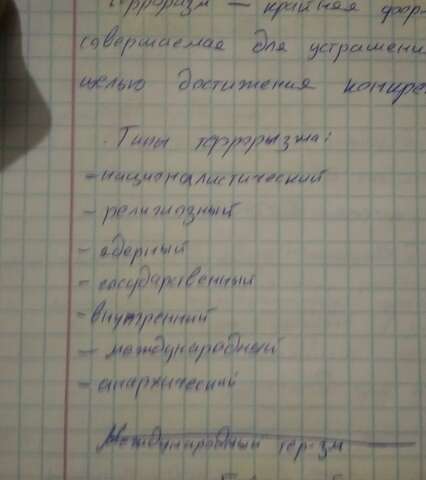 Терроризм — крайняя фор
совершаемая для устрашени
целью достижения конкре
Типы терроризма:
- националистический
- религиозный
- ядерный
- государственный
- внутренний
- международный
- анархический
Международный тер-зм